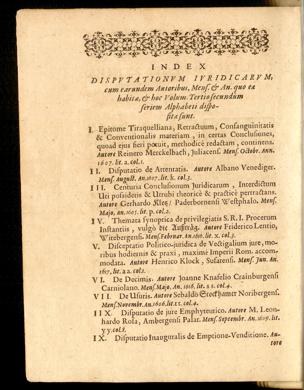 INDEX
DISPVTATIONVM IVRIDICARVM,
cum earundem Autoribus, Mens. & An. quo ea
habitæ, & hoc Volum. Tertio secundum
seriem Alphabeti dispo-
sitæ sunt.
I. Epitome Tiraquelliana, Retractuum, Consanguinitatis
& Conventionalis materiam, in certas Conclusiones,
quoad ejus fieri potuit, methodicè redactam, continens.
Autore Reinero Merckelbach, Juliacens. Mens. Octobr. Ann.
1607. lit. a. col. 1.
II. Disputatio de Attentatis. Autore Albano Venediger.
Mens. August. An. 1607. lit. k. col. 3.
III. Centuria Conclusionum Juridicarum, Interdictum
Uti possidetis & Utrubi theoricè & practicè pertractans.
Autore Gerhardo Kleß/ Paderbornensi Westphalo. Mens.
Majo, an. 1605. lit. p. col. 2.
IV. Themata synoptica de privilegiatis S. R. I. Procerum
Instantiis, vulgò die Austräg. Autore Friderico Lentio,
Witebergens. Mens. Februar. An. 1616. lit. x. col. 3.
V. Disceptatio Politico-juridica de Vectigalium jure, mo-
ribus hodiernis & praxi, maximè Imperii Rom. accom-
modata. Autore Henrico Klock, Susatensi. Mens. Jun. An.
1607. lit. aa. col. 1.
VI. De Decimis. Autore Joanne Knafelio Crainburgensi
Carniolano. Mens. Majo, An. 1616. lit. ss. col. 4.
VII. De Usuris. Autore Sebaldo Stockhamer Noribergens.
Mens. Novembr. An. 1606. lit. xx. col. 4.
IIX. Disputatio de jure Emphyteutico. Autore M. Leon-
hardo Rola, Ambergensi Palat. Mens. Septembr. An. 1607. lit.
yy. col. 3.
IX. Disputatio Inauguralis de Emptione-Venditione. Au-
tore